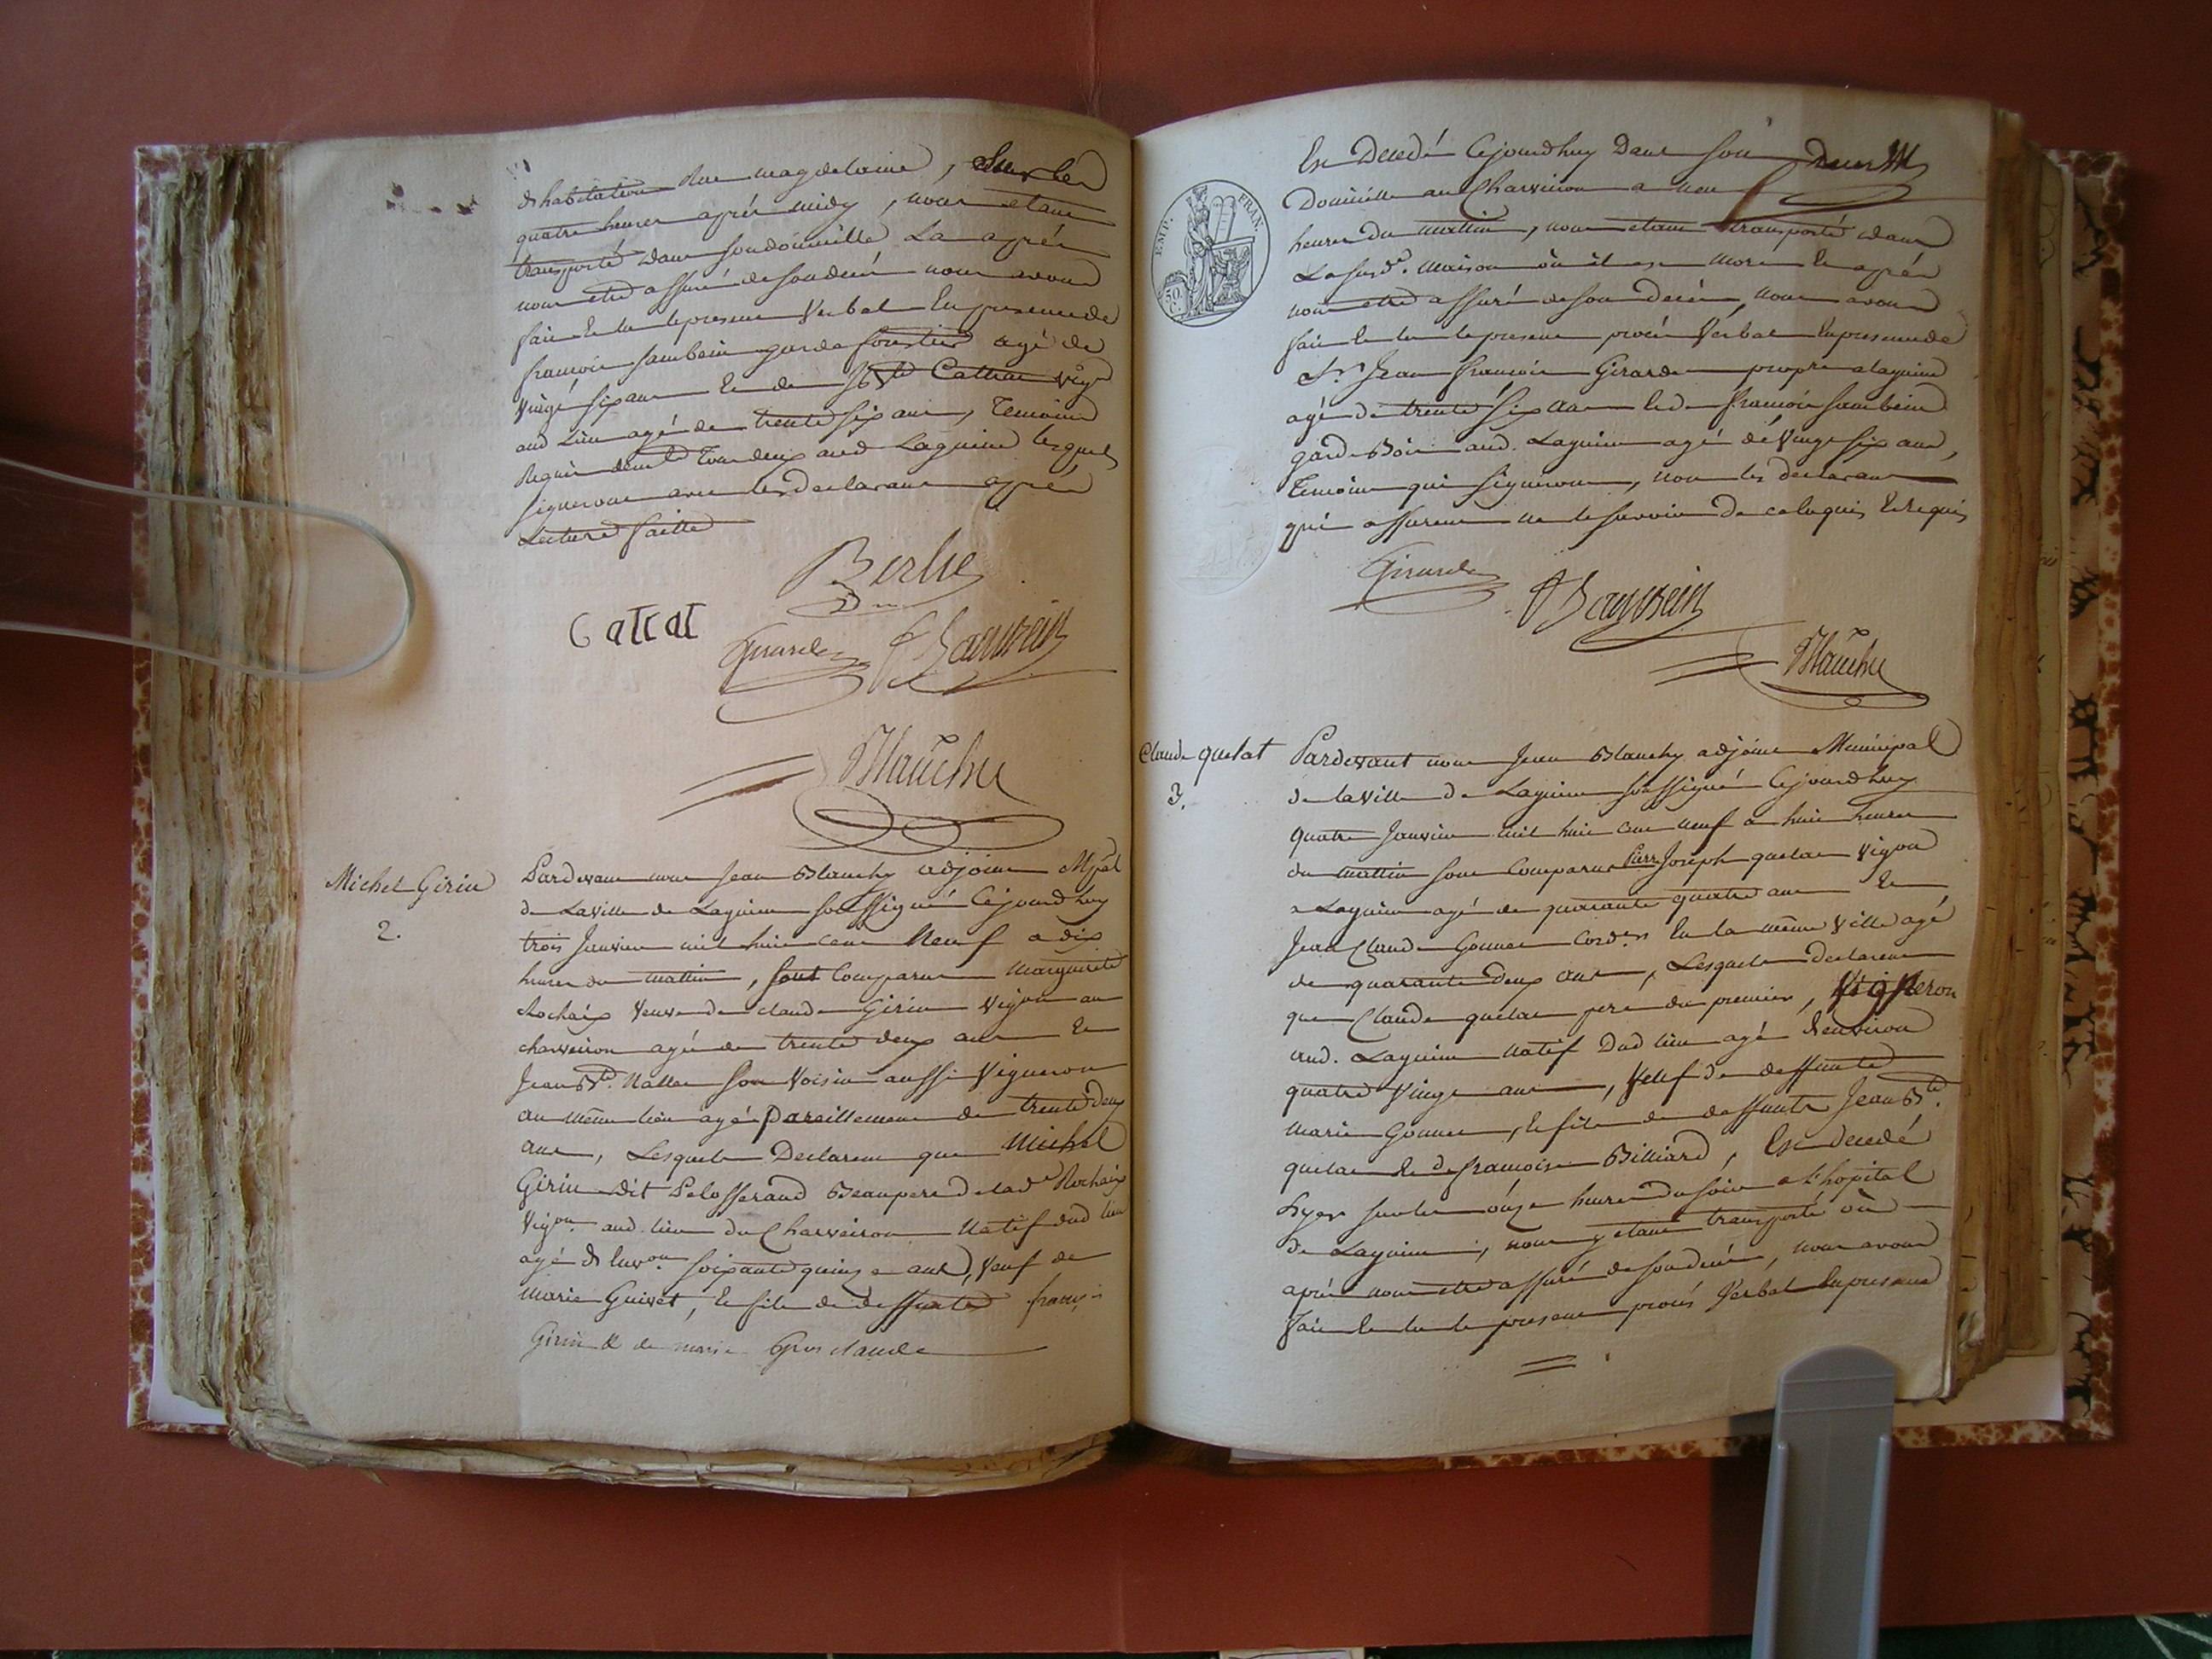 d'habitation Rue magdelaine, Sur les
quatre heures après midy, nous etant
transporté dans son domicille La après
nous etre assuré de son decés nous avons
fait et lu le present Verbal En presence de
françois sambein garde forestier agé de
Vingt six ans et de J. Bte Cattrat Vign
aud Lieu agé de trente six ans, Temoins
Requis Tous deux aud Lagnieu lesquels
signeront avec les declarants après
Lecture faitte
Berlie
Cattat
Girarde Sambein
Blanchy
Michel Girin
2.
Pardevant nous Jean Blanchy adjoint Mpal
de La Ville de Lagnieu soussigné Cejourdhuy
trois Janvier mil huit cent Neuf a dix
heures du mattin, sont Comparus Marguerite
Rochaix Veuve de claude Girin Vigon au
charveiron agée de trente deux ans et
Jean Bte. Nallet son Voisin aussi Vigneron
au même lieu agé pareillement de trente deux
ans, Lesquels Declarent que Michel
Girin dit Pelosserand Beaupere de lade Rochaix
Vigon aud. lieu du Charveiron Natif dud lieu
agé d'Envon. soixante quinze ans, Veuf de
Marie Guivet, et fils de deffunts françois
Girin & de marie Gros claude
Est Decedé Cejourdhuy Dans son
Domicille au Charveiron a neuf
heures du mattin, nous etant transporté dans
La susde. Maison où il est Mort et après
nous etre assuré de son decés, nous avons
fait et lu le present procés Verbal En presence de
Sr. Jean françois Girarde propre a Lagnieu
agé de trente six ans et de françois sambein
garde Bois aud. Lagnieu agé de Vingt six ans,
Temoins qui signeront, non les declarants
qui assurent ne le savoir de ce Enquis Et requis
EMP. FRAN.
50 C.
Girarde
Sambein
Blanchy
Claude quelat
3.
Pardevant nous Jean Blanchy adjoint Municipal
de la Ville de Lagnieu soussigné Cejourdhuy
quatre Janvier mil huit cent neuf a huit heures
du mattin sont Comparus Pierre Joseph quelat Vigon
a Lagnieu agé de quarante quatre ans et
Jean Claude Gonnet Cordr En la même Ville agé
de quarante deux ans, Lesquels Declarent
que Claude quelat pere du premier, Vigneron
aud. Lagnieu Natif Dud lieu agé d'environ
quatre Vingt ans, Veuf de deffunte
Marie Gonnet, et fils de deffunts Jean Bte.
quelat et de françoise Billiard, Est decedé
hyer sur les onze heures du soir a L'hopital
de Lagnieu, nous y etant transporté où
après nous etre assuré de son decés, nous avons
fait et lu le present procés Verbal En presence